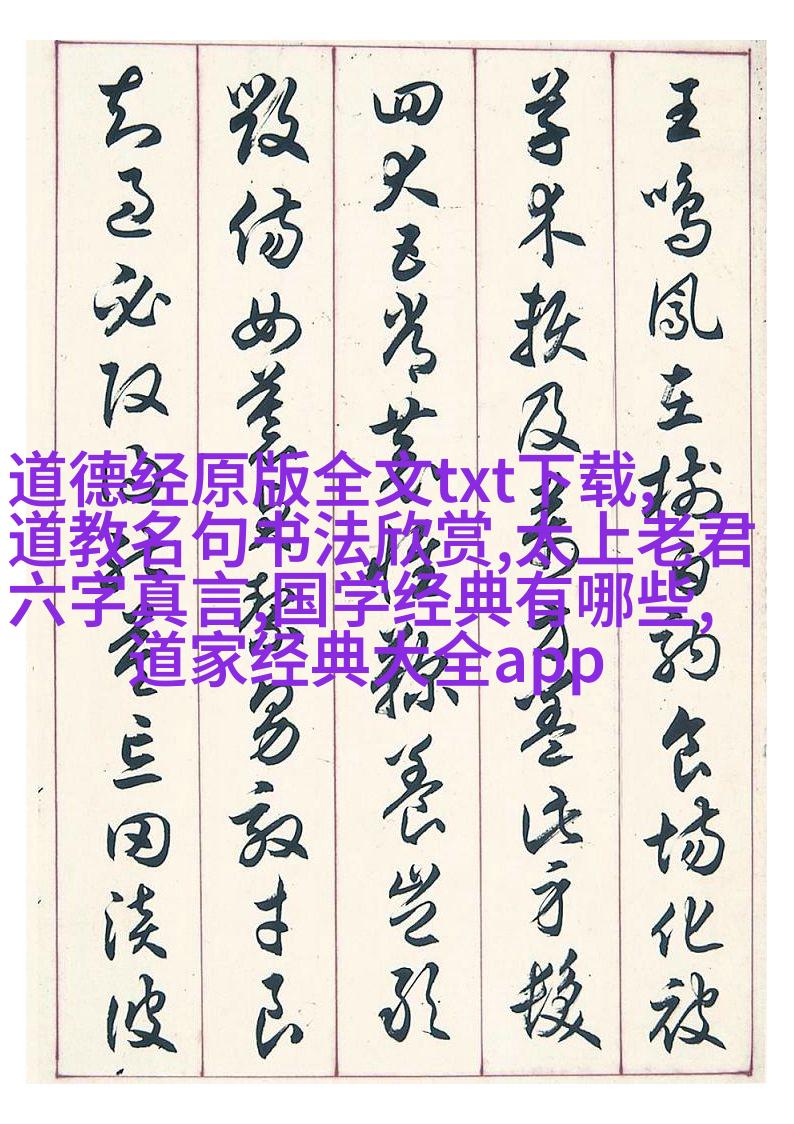 王鳴鳳在樹白駒食場化被
草木賴及萬方蓋此身髮
四大五常恭惟鞠養豈敢
毀傷女慕貞絜男效才良
知過必改得能莫忘罔談彼
道德经原版全文txt下载,
道教名句书法欣赏,太上老君
六字真言,国学经典有哪些,
道家经典大全app